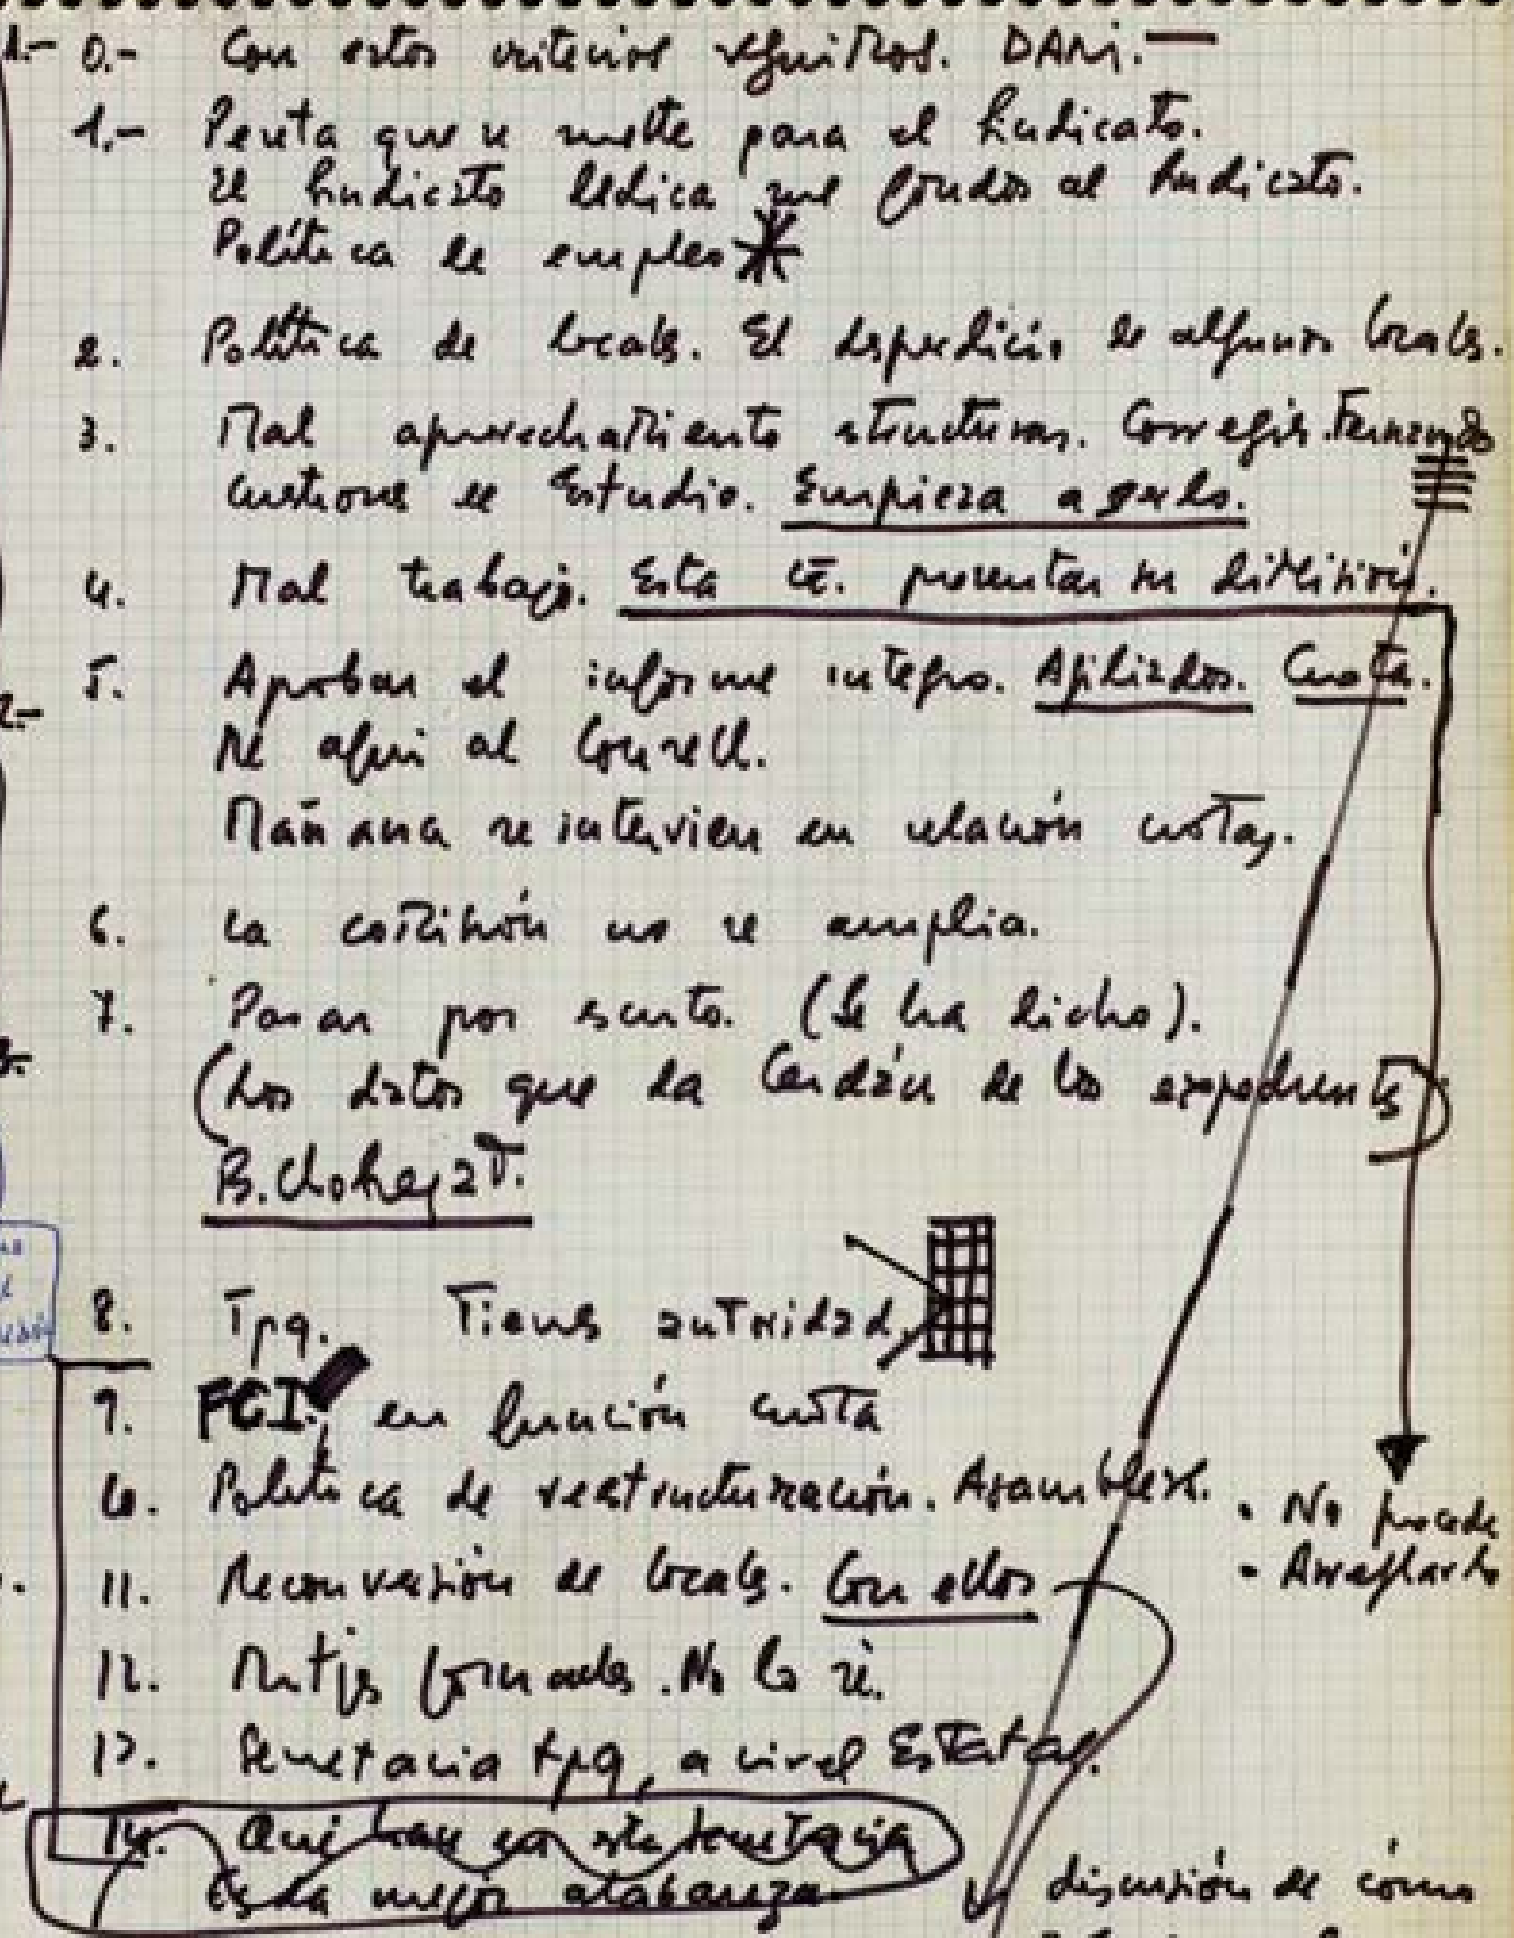 0.- Con estos criterios seguimos. DANI.—
1.- Peseta que se mete para el Sindicato.
el Sindicato dedica sus fondos al Sindicato.
Política de empleo *
2. Política de locales. El desperdicio de algunos locales.
3. Mal aprovechamiento estructuras. Corregir. Fernando
Cuestiones de Estudio. Empieza a serlo.
4. Mal trabajo. Esta CE. presentar su dimisión.
5. Aprobar el informe íntegro. Afiliados. Cuota.
De aquí al Consell.
Mañana se intervien en relación cuotas.
6. La comisión no se amplia.
7. Pasar por escrito. (Se ha dicho).
(Los datos que da Cerdán de los expedientes)
B.
8. Tpq. Tienes autoridad,
9. FGI., en función cuota
10. Política de reestructuración. Asamblea.
• No procede
• Arreglarlo
11. Reconversión de locales. Con ellos
12. No lo sé.
13. Secretaria tpq, a nivel Estatal.
14. Qué hace en esta Secretaria
Es la mejor alabanza
discusión de cómo